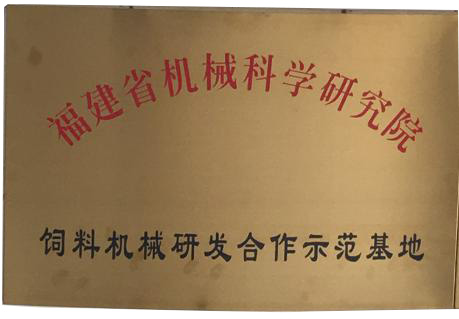 福建省机械科学研究院
饲料机械研发合作示范基地